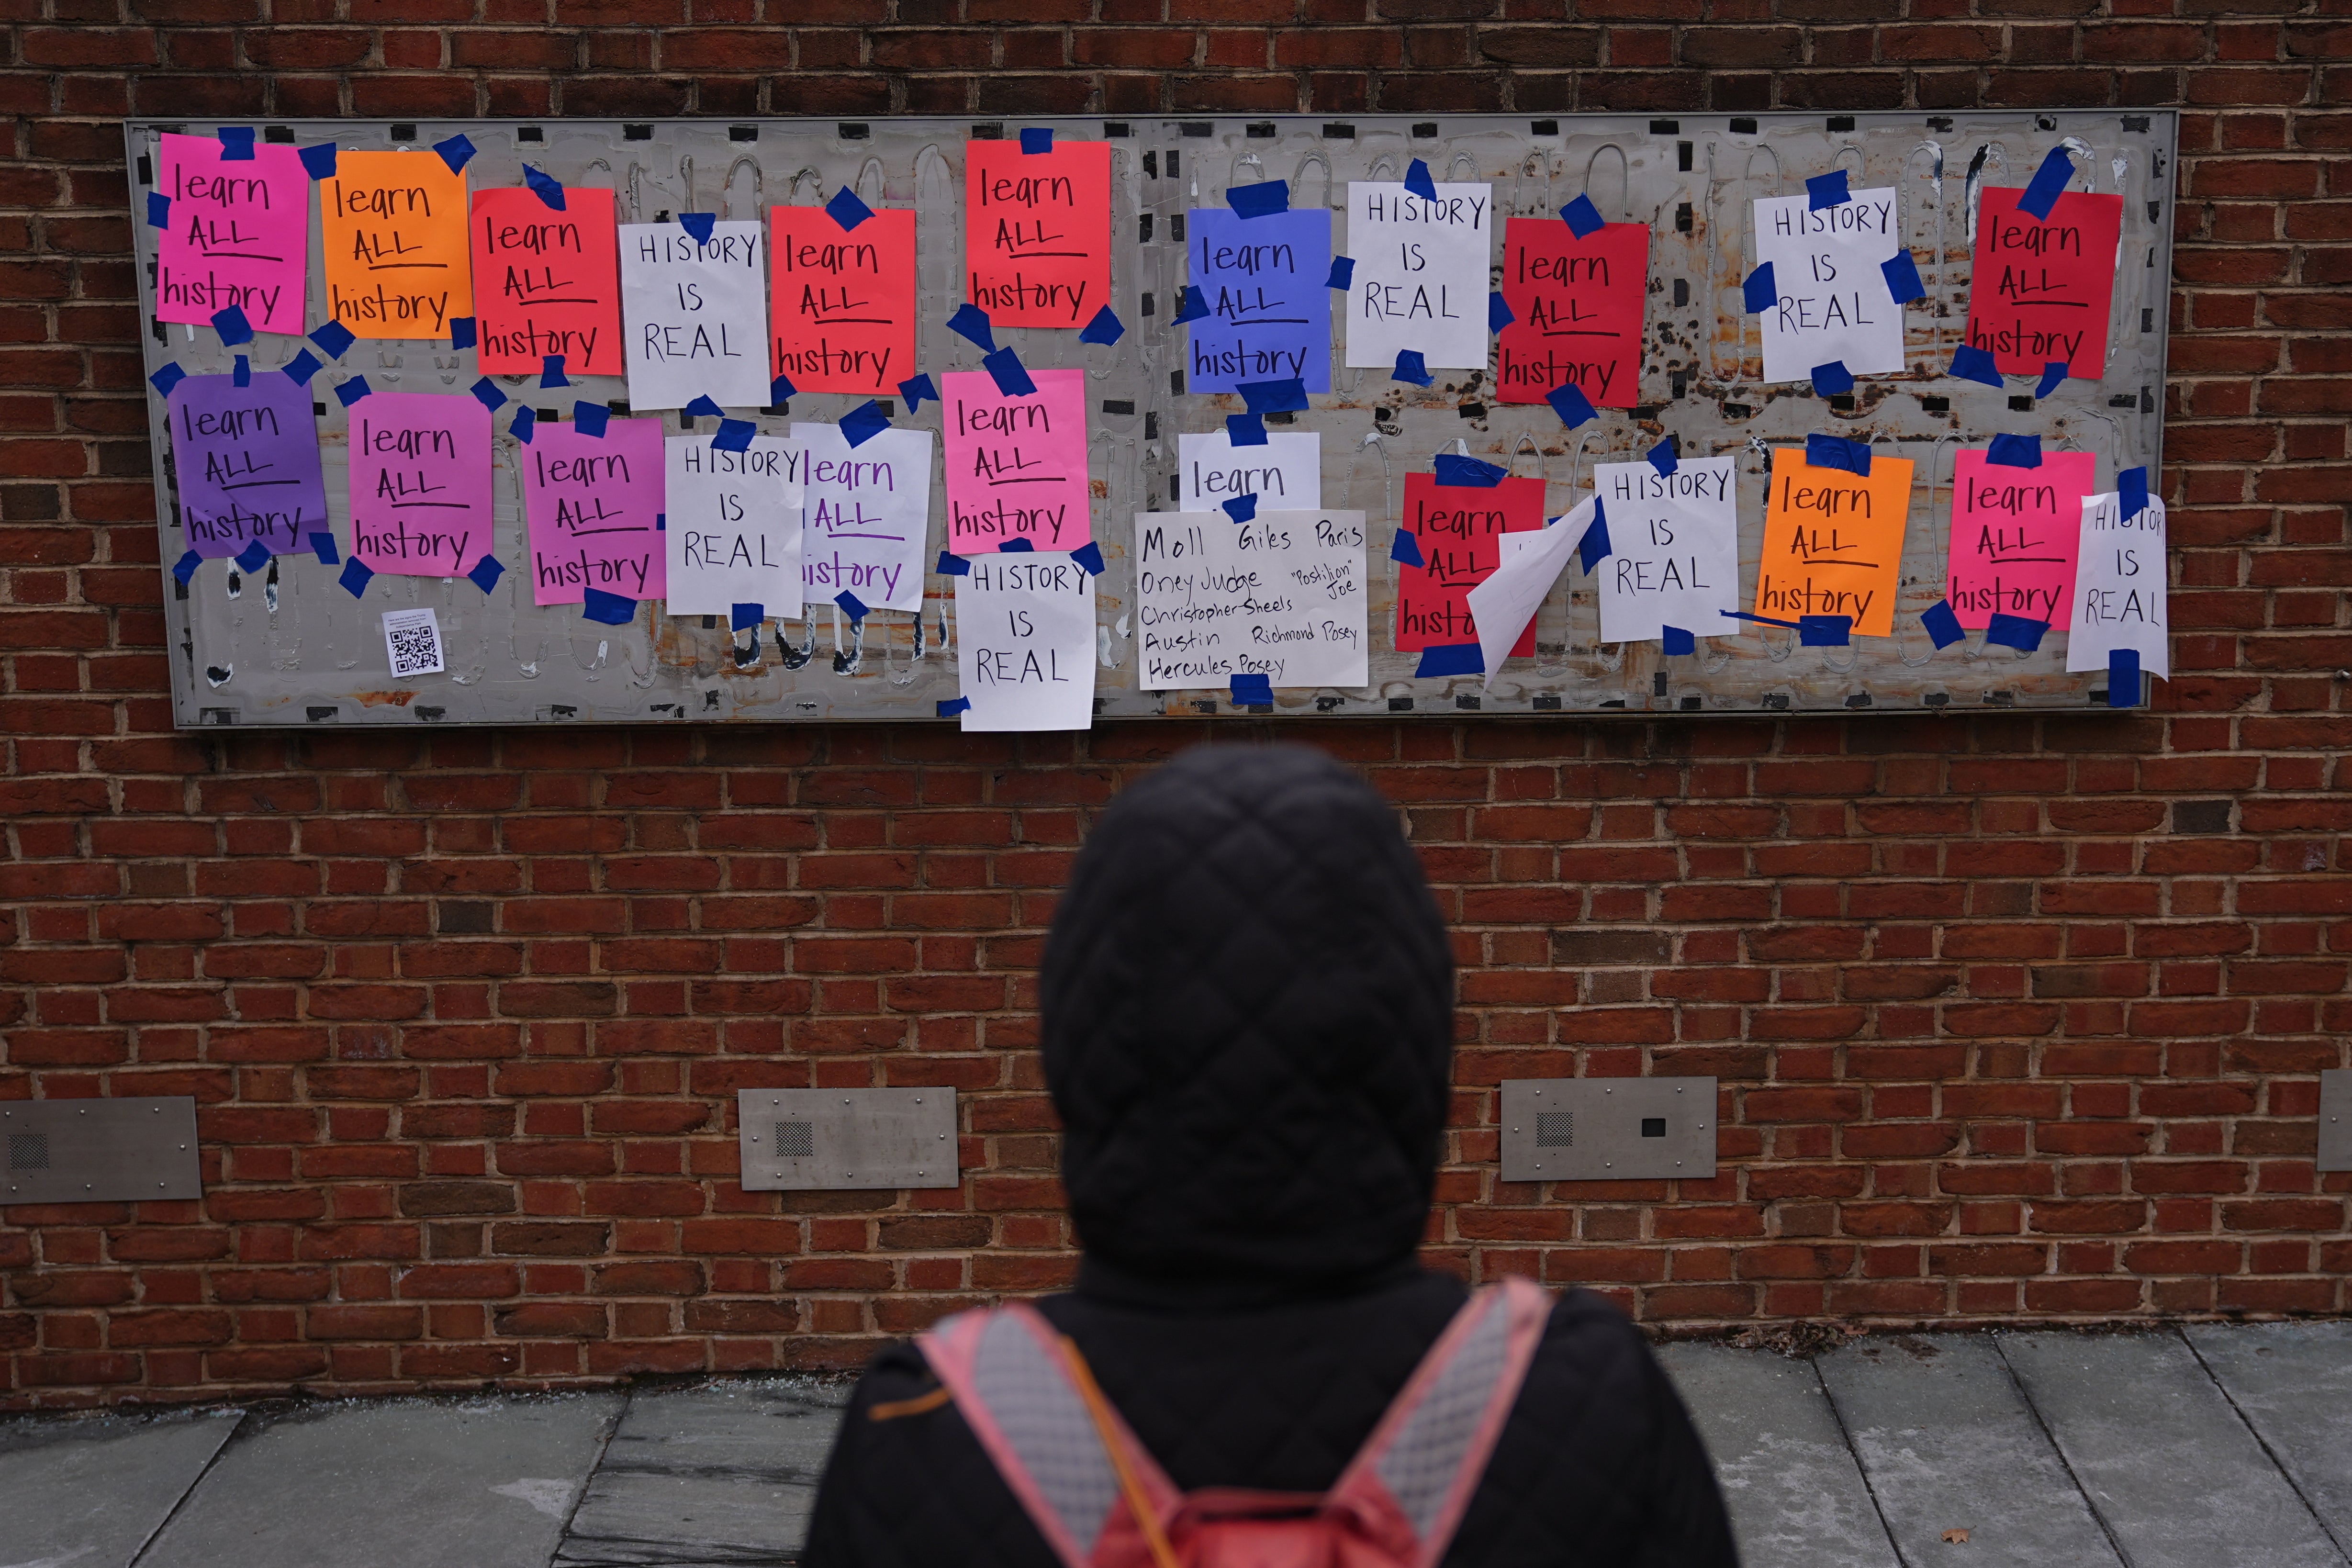 learn
ALL
history
learn
ALL
history
learn
ALL
history
HISTORY
IS
REAL
learn
ALL
history
learn
ALL
history
learn
ALL
history
HISTORY
IS
REAL
learn
ALL
history
HISTORY
IS
REAL
learn
ALL
history
learn
ALL
history
learn
ALL
history
learn
ALL
history
HISTORY
IS
REAL
learn
ALL
history
learn
ALL
history
HISTORY
IS
REAL
learn
Moll Giles Paris
Oney Judge "Postilion"
Joe
Christopher Sheels
Austin Richmond Posey
Hercules Posey
learn
ALL
histo
HISTORY
IS
REAL
learn
ALL
history
learn
ALL
history
HISTOR
IS
REAL